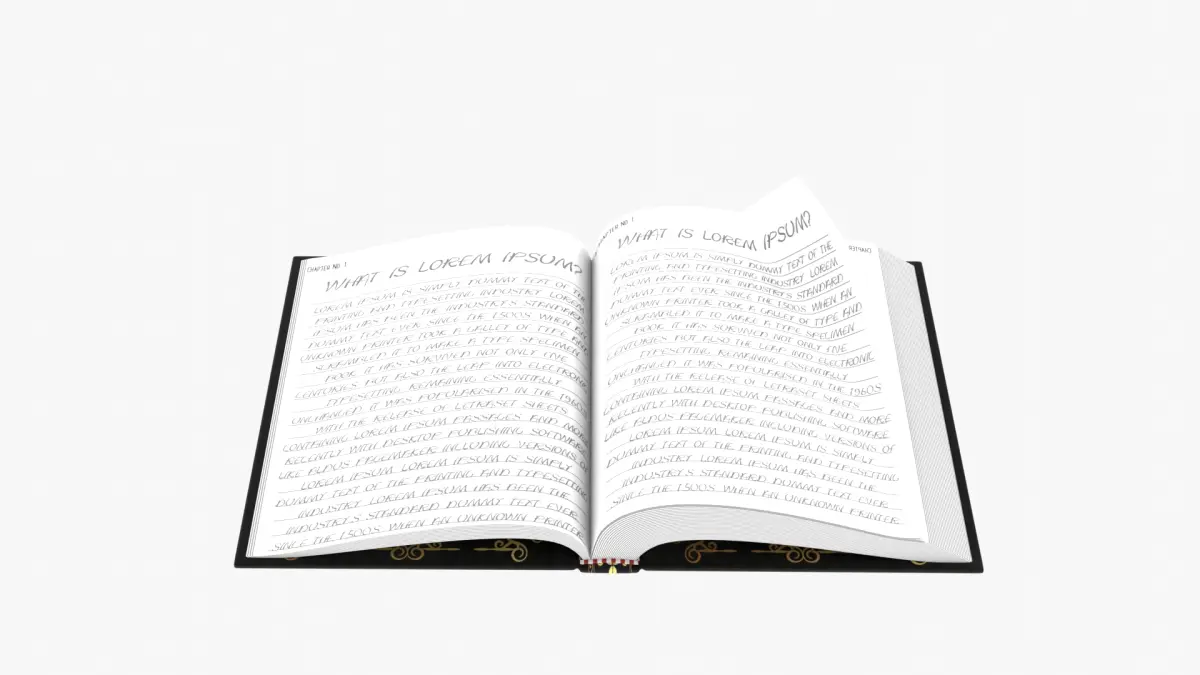 CHAPTER NO. 1
WHAT IS LOREM IPSUM?
LOREM IPSUM IS SIMPLY DUMMY TEXT OF THE
PRINTING AND TYPESETTING INDUSTRY LOREM
IPSUM HAS BEEN THE INDUSTRY'S STANDARD
DUMMY TEXT EVER SINCE THE 1500S WHEN AN
UNKNOWN PRINTER TOOK A GALLEY OF TYPE AND
SCRAMBLED IT TO MAKE A TYPE SPECIMEN
BOOK IT HAS SURVIVED NOT ONLY FIVE
CENTURIES BUT ALSO THE LEAP INTO ELECTRONIC
TYPESETTING REMAINING ESSENTIALLY
UNCHANGED IT WAS POPULARISED IN THE 1960S
WITH THE RELEASE OF LETRASET SHEETS
CONTAINING LOREM IPSUM PASSAGES AND MORE
RECENTLY WITH DESKTOP PUBLISHING SOFTWARE
LIKE ALDUS PAGEMAKER INCLUDING VERSIONS OF
LOREM IPSUM LOREM IPSUM IS SIMPLY
DUMMY TEXT OF THE PRINTING AND TYPESETTING
INDUSTRY LOREM IPSUM HAS BEEN THE
INDUSTRY'S STANDARD DUMMY TEXT EVER
SINCE THE 1500S WHEN AN UNKNOWN PRINTER
CHAPTER NO. 1
WHAT IS LOREM IPSUM?
LOREM IPSUM IS SIMPLY DUMMY TEXT OF THE
PRINTING AND TYPESETTING INDUSTRY LOREM
IPSUM HAS BEEN THE INDUSTRY'S STANDARD
DUMMY TEXT EVER SINCE THE 1500S WHEN AN
UNKNOWN PRINTER TOOK A GALLEY OF TYPE AND
SCRAMBLED IT TO MAKE A TYPE SPECIMEN
BOOK IT HAS SURVIVED NOT ONLY FIVE
CENTURIES BUT ALSO THE LEAP INTO ELECTRONIC
TYPESETTING REMAINING ESSENTIALLY
UNCHANGED IT WAS POPULARISED IN THE 1960S
WITH THE RELEASE OF LETRASET SHEETS
CONTAINING LOREM IPSUM PASSAGES AND MORE
RECENTLY WITH DESKTOP PUBLISHING SOFTWARE
LIKE ALDUS PAGEMAKER INCLUDING VERSIONS OF
LOREM IPSUM LOREM IPSUM IS SIMPLY
DUMMY TEXT OF THE PRINTING AND TYPESETTING
INDUSTRY LOREM IPSUM HAS BEEN THE
INDUSTRY'S STANDARD DUMMY TEXT EVER
SINCE THE 1500S WHEN AN UNKNOWN PRINTER